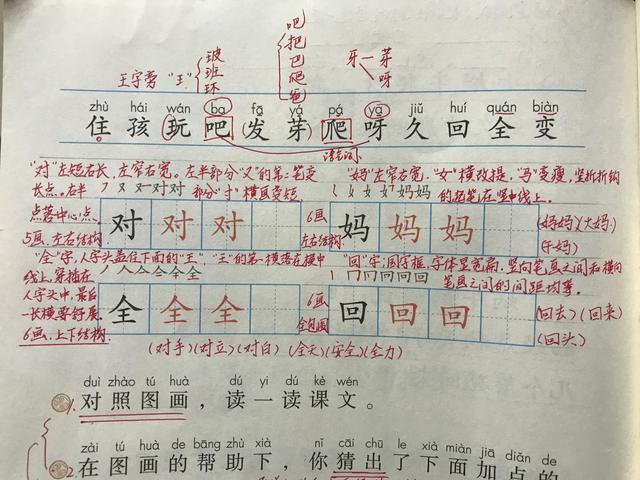 吧
把
巴
爬
爸
玻
班
环
王字旁 "王"
牙一芽
呀
zhù hái wán ba fā yá pá yā jiǔ huí quán biàn
住 孩 玩 吧 发 芽 爬 呀 久 回 全 变
"对"左短右长、左窄右宽。左半部分"又"的第二笔变
长点。右半 对对 部分"寸"横且变短,
点落中心点。
5画、左右结构
对 对 对
"妈"左窄右宽。"女"横改提,"马"变瘦,竖折折钩
妈妈 的起笔在竖中线上。
6画
左右结构
妈 妈 妈
(妈妈)(大妈)
(干妈)
"全"字,人字头盖住下面的"王","王"的第一横落在横中
线上,穿插在 全全
人字头中,最后
一长横要舒展。
6画,上下结构
全 全 全
"回"字:国字框,字体呈宽扁,竖向笔画之间和横向
回回 笔画之间的间距均等。
6画
全包围
回 回 回
(回去)(回来)
(回头)
(对手)(对立)(对白) (全天)(安全)(全力)
duì zhào tú huà dú yi dú kè wén
1. 对照图画,读一读课文。
zài tú huà de bāng zhù xià nǐ cāi chū le xià miàn jiā diǎn de
2. 在图画的帮助下,你猜出了下面加点的